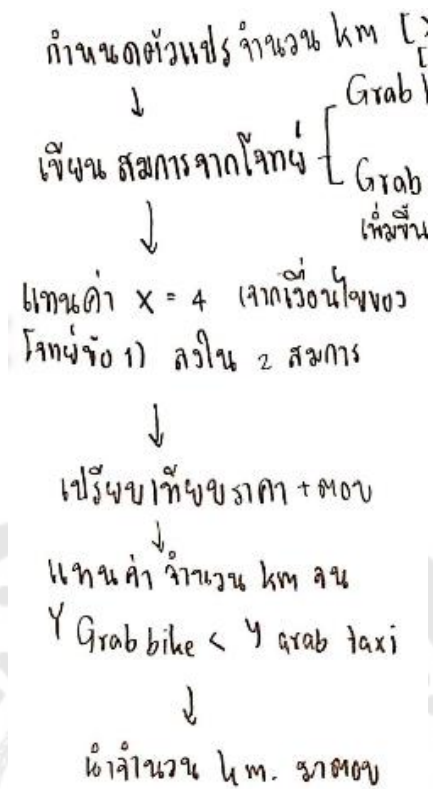 กำหนดตัวแปร จำนวน km [
↓
Grab
เขียน สมการจากโจทย์
Grab
เพิ่มขึ้น
↓
แทนค่า x = 4 (จากเงื่อนไขของ
โจทย์ข้อ 1) ลงใน 2 สมการ
↓
เปรียบเทียบราคา + ตอบ
↓
แทนค่า จำนวน km จน
Y Grab bike < y grab taxi
↓
นำจำนวน km. มาตอบ